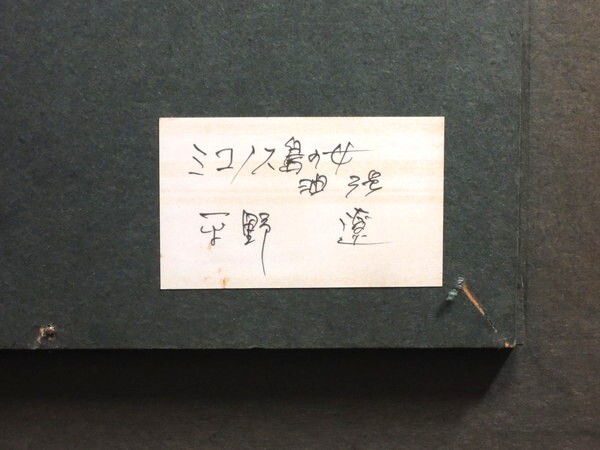 ミコノス島の女
油 3号
平野 遼